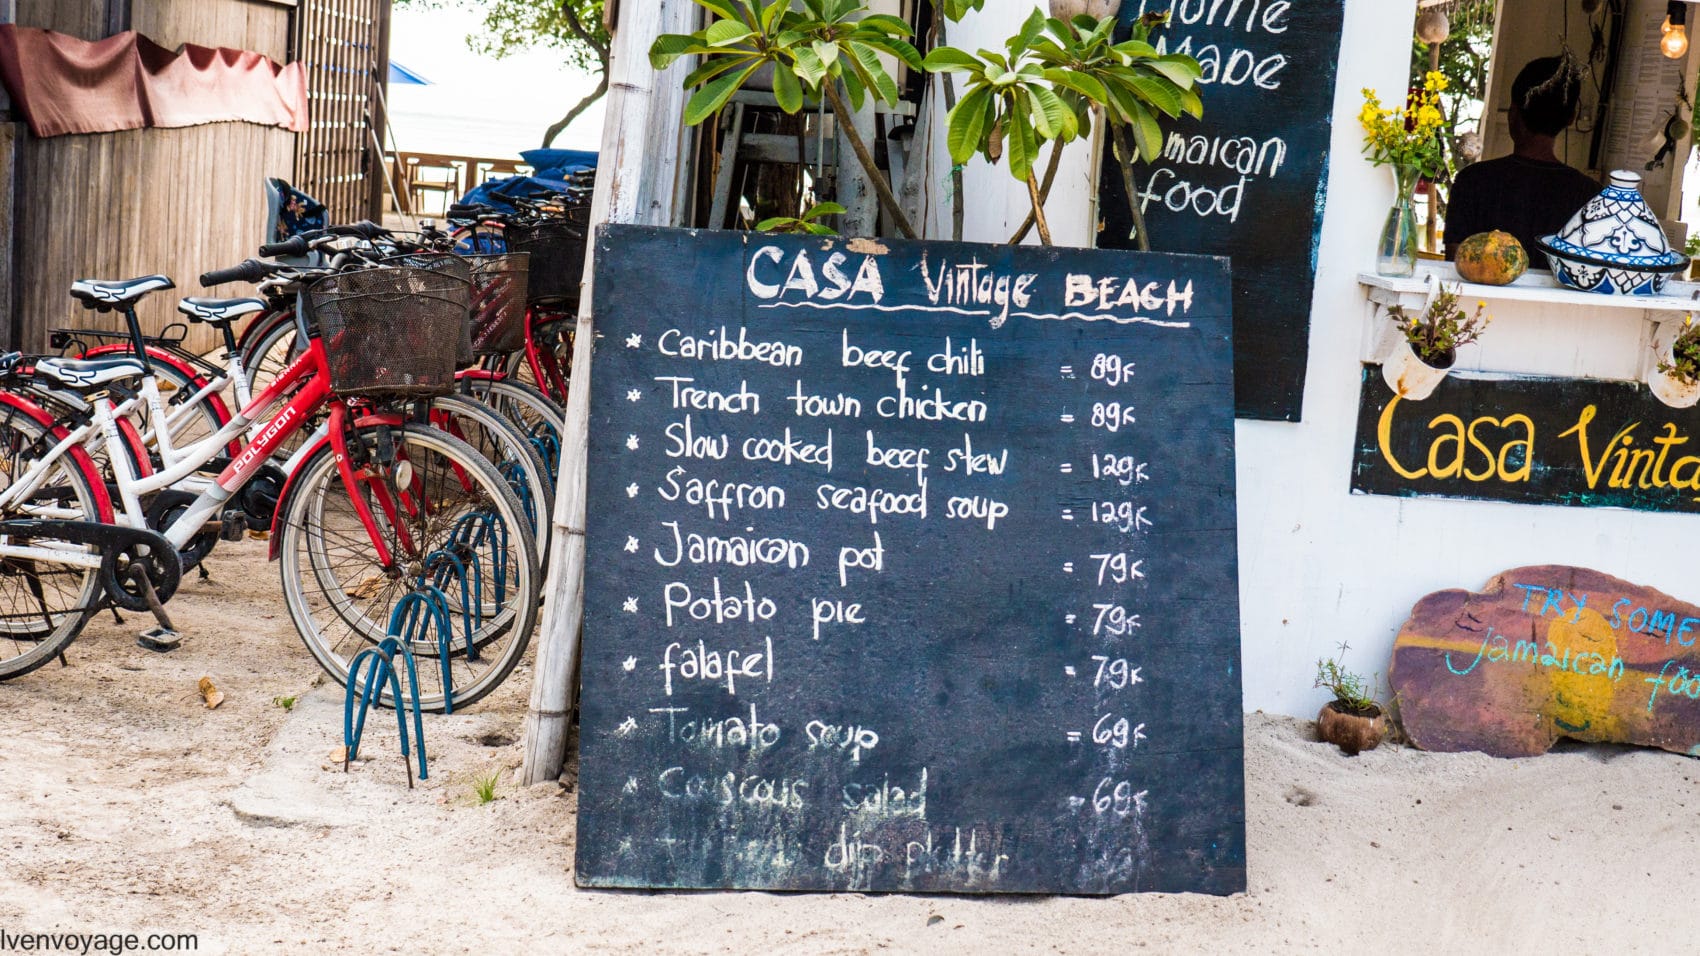 Home
Made
Jamaican
food
CASA Vintage BEACH
* Caribbean beef chili = 89K
* Trench town chicken = 89K
* Slow cooked beef stew = 129K
* Saffron seafood soup = 129K
* Jamaican pot = 79K
* Potato pie = 79K
* falafel = 79K
* Tomato soup = 69K
* Couscous salad = 69K
* dip platter
Casa Vinta
TRY SOME
Jamaican foo
POLYGON
lvenvoyage.com